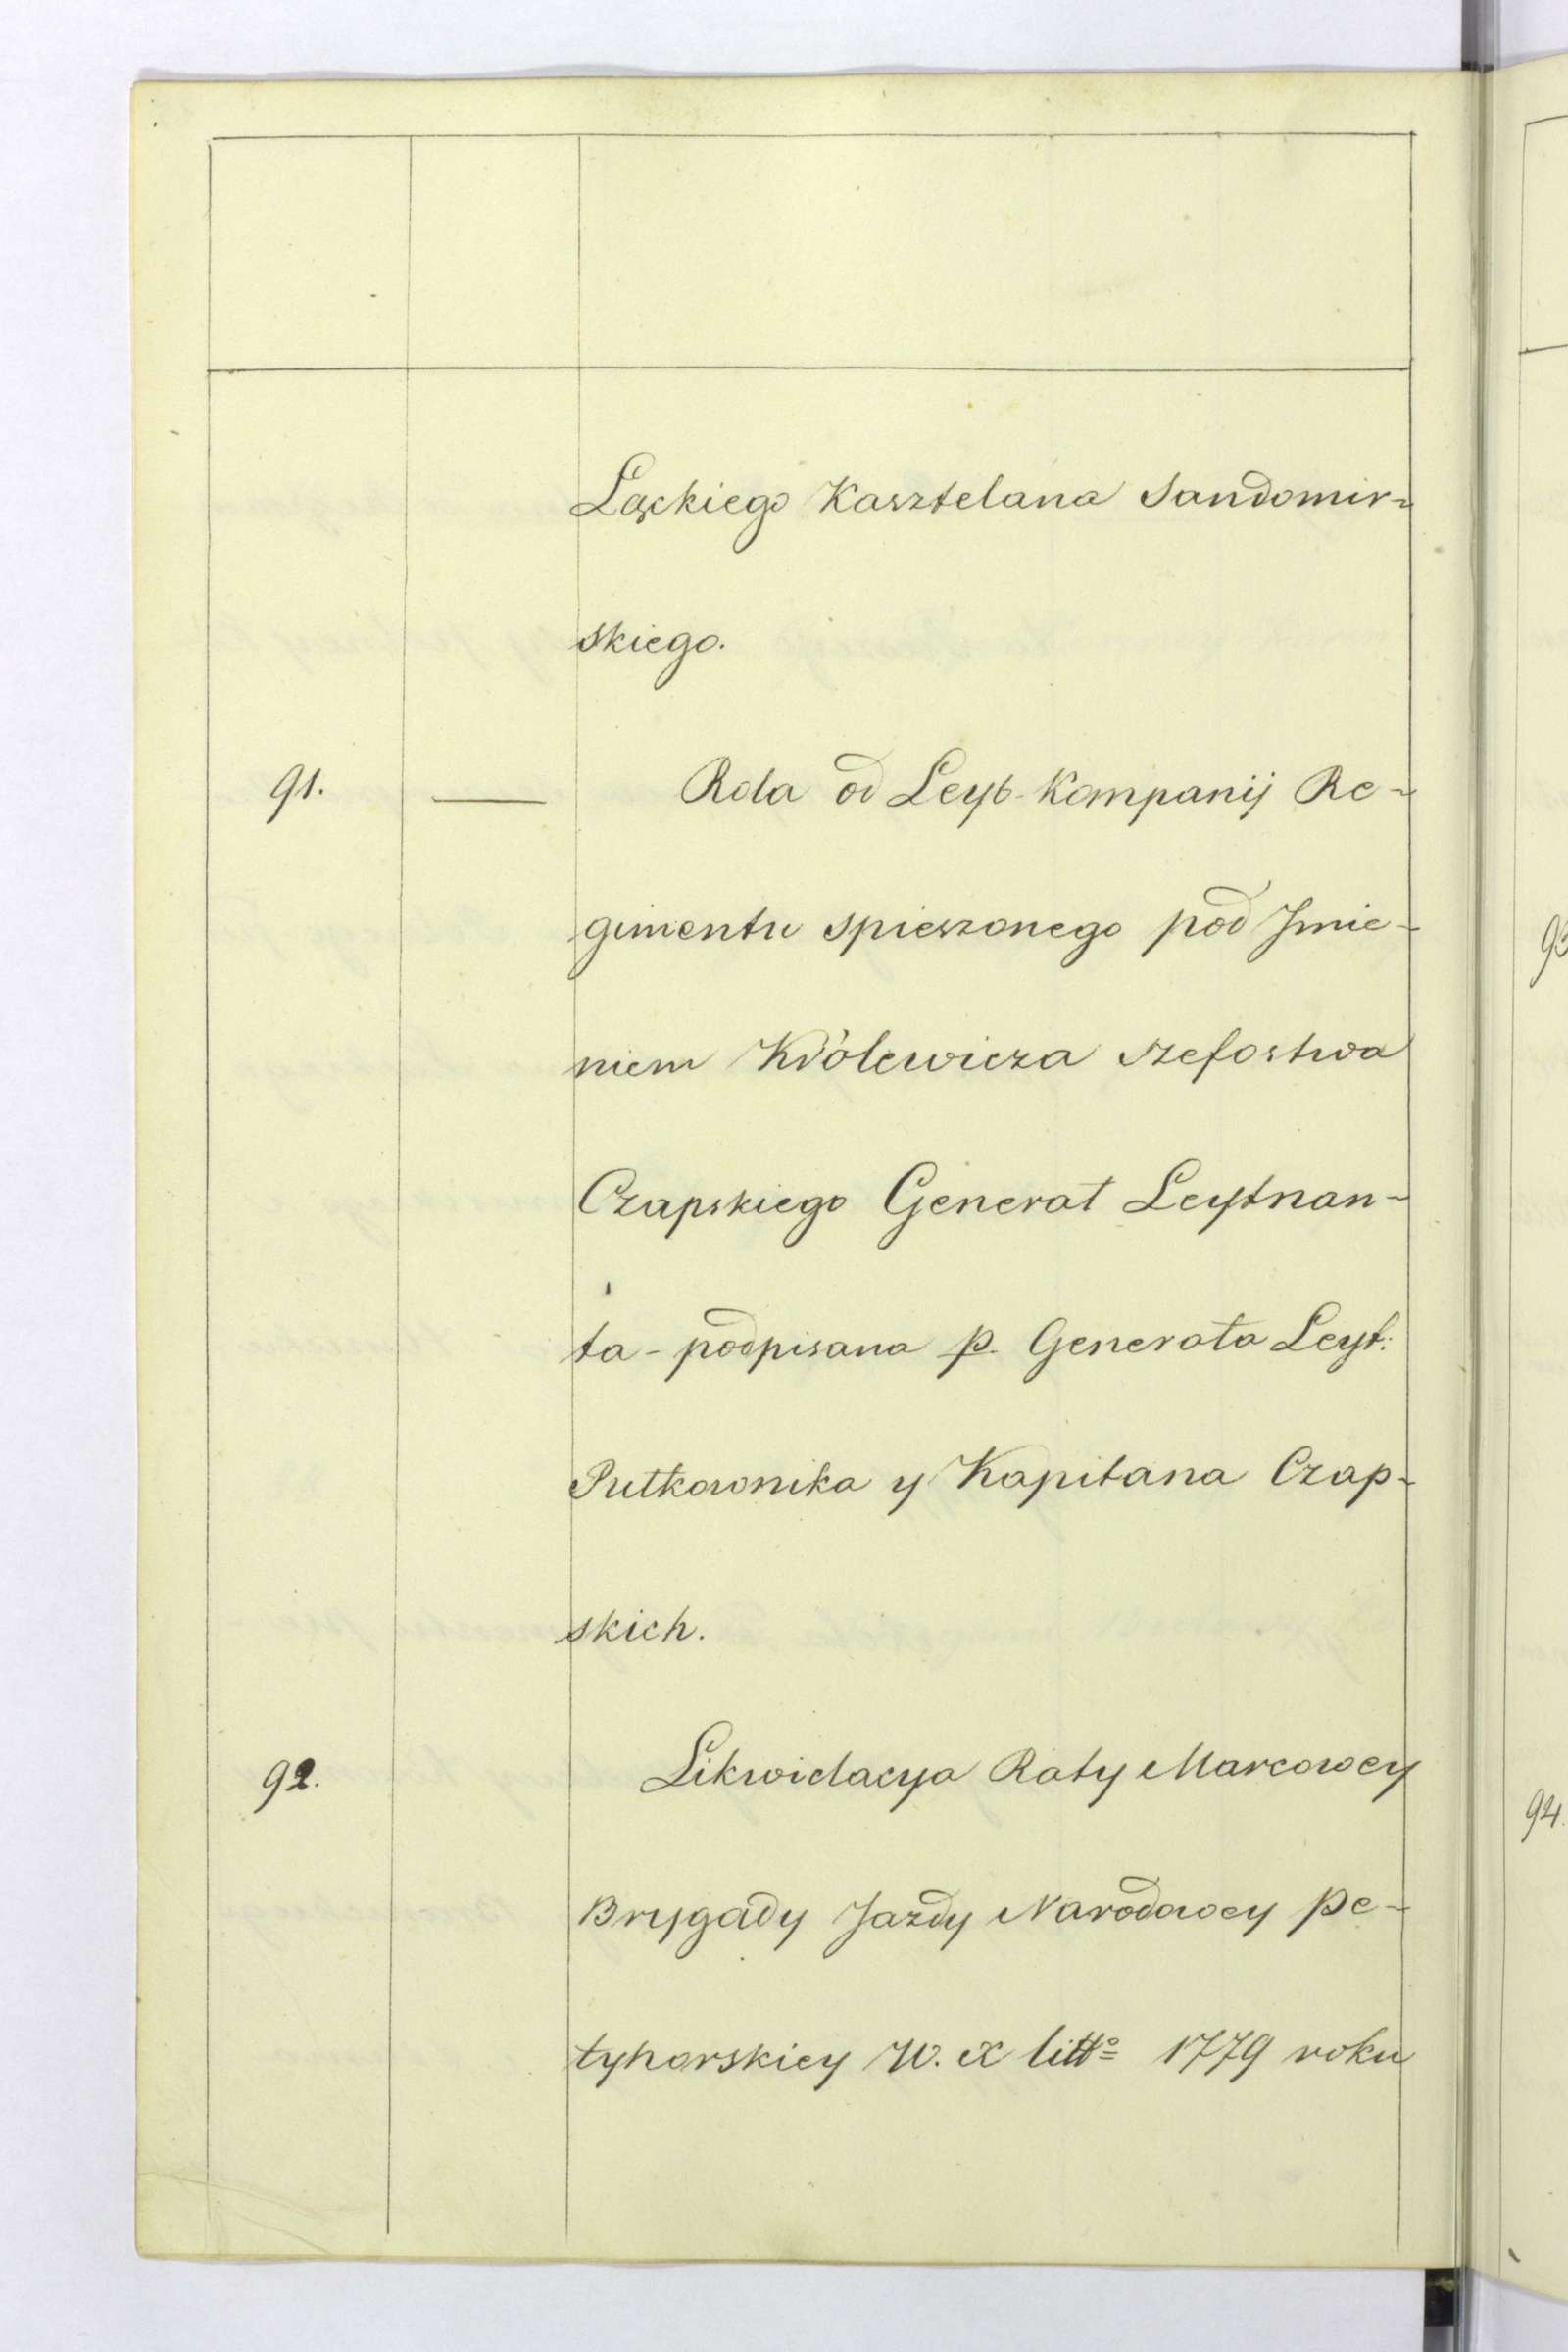 Łąckiego Kasztelana Sandomir-
skiego.
91. — Rola od Leyb-Kompanij Re-
gimentu spieszonego pod Jmie-
niem Królewicza szefostwa
Czapskiego Generał Leytnan-
ta - podpisana p. Generała Leyt:
Pułkownika y Kapitana Czap-
skich.
92. Likwidacya Raty Marcowey
Brygady Jazdy Narodowey Pe-
tyhorskiey W. X litto 1779 roku
94.